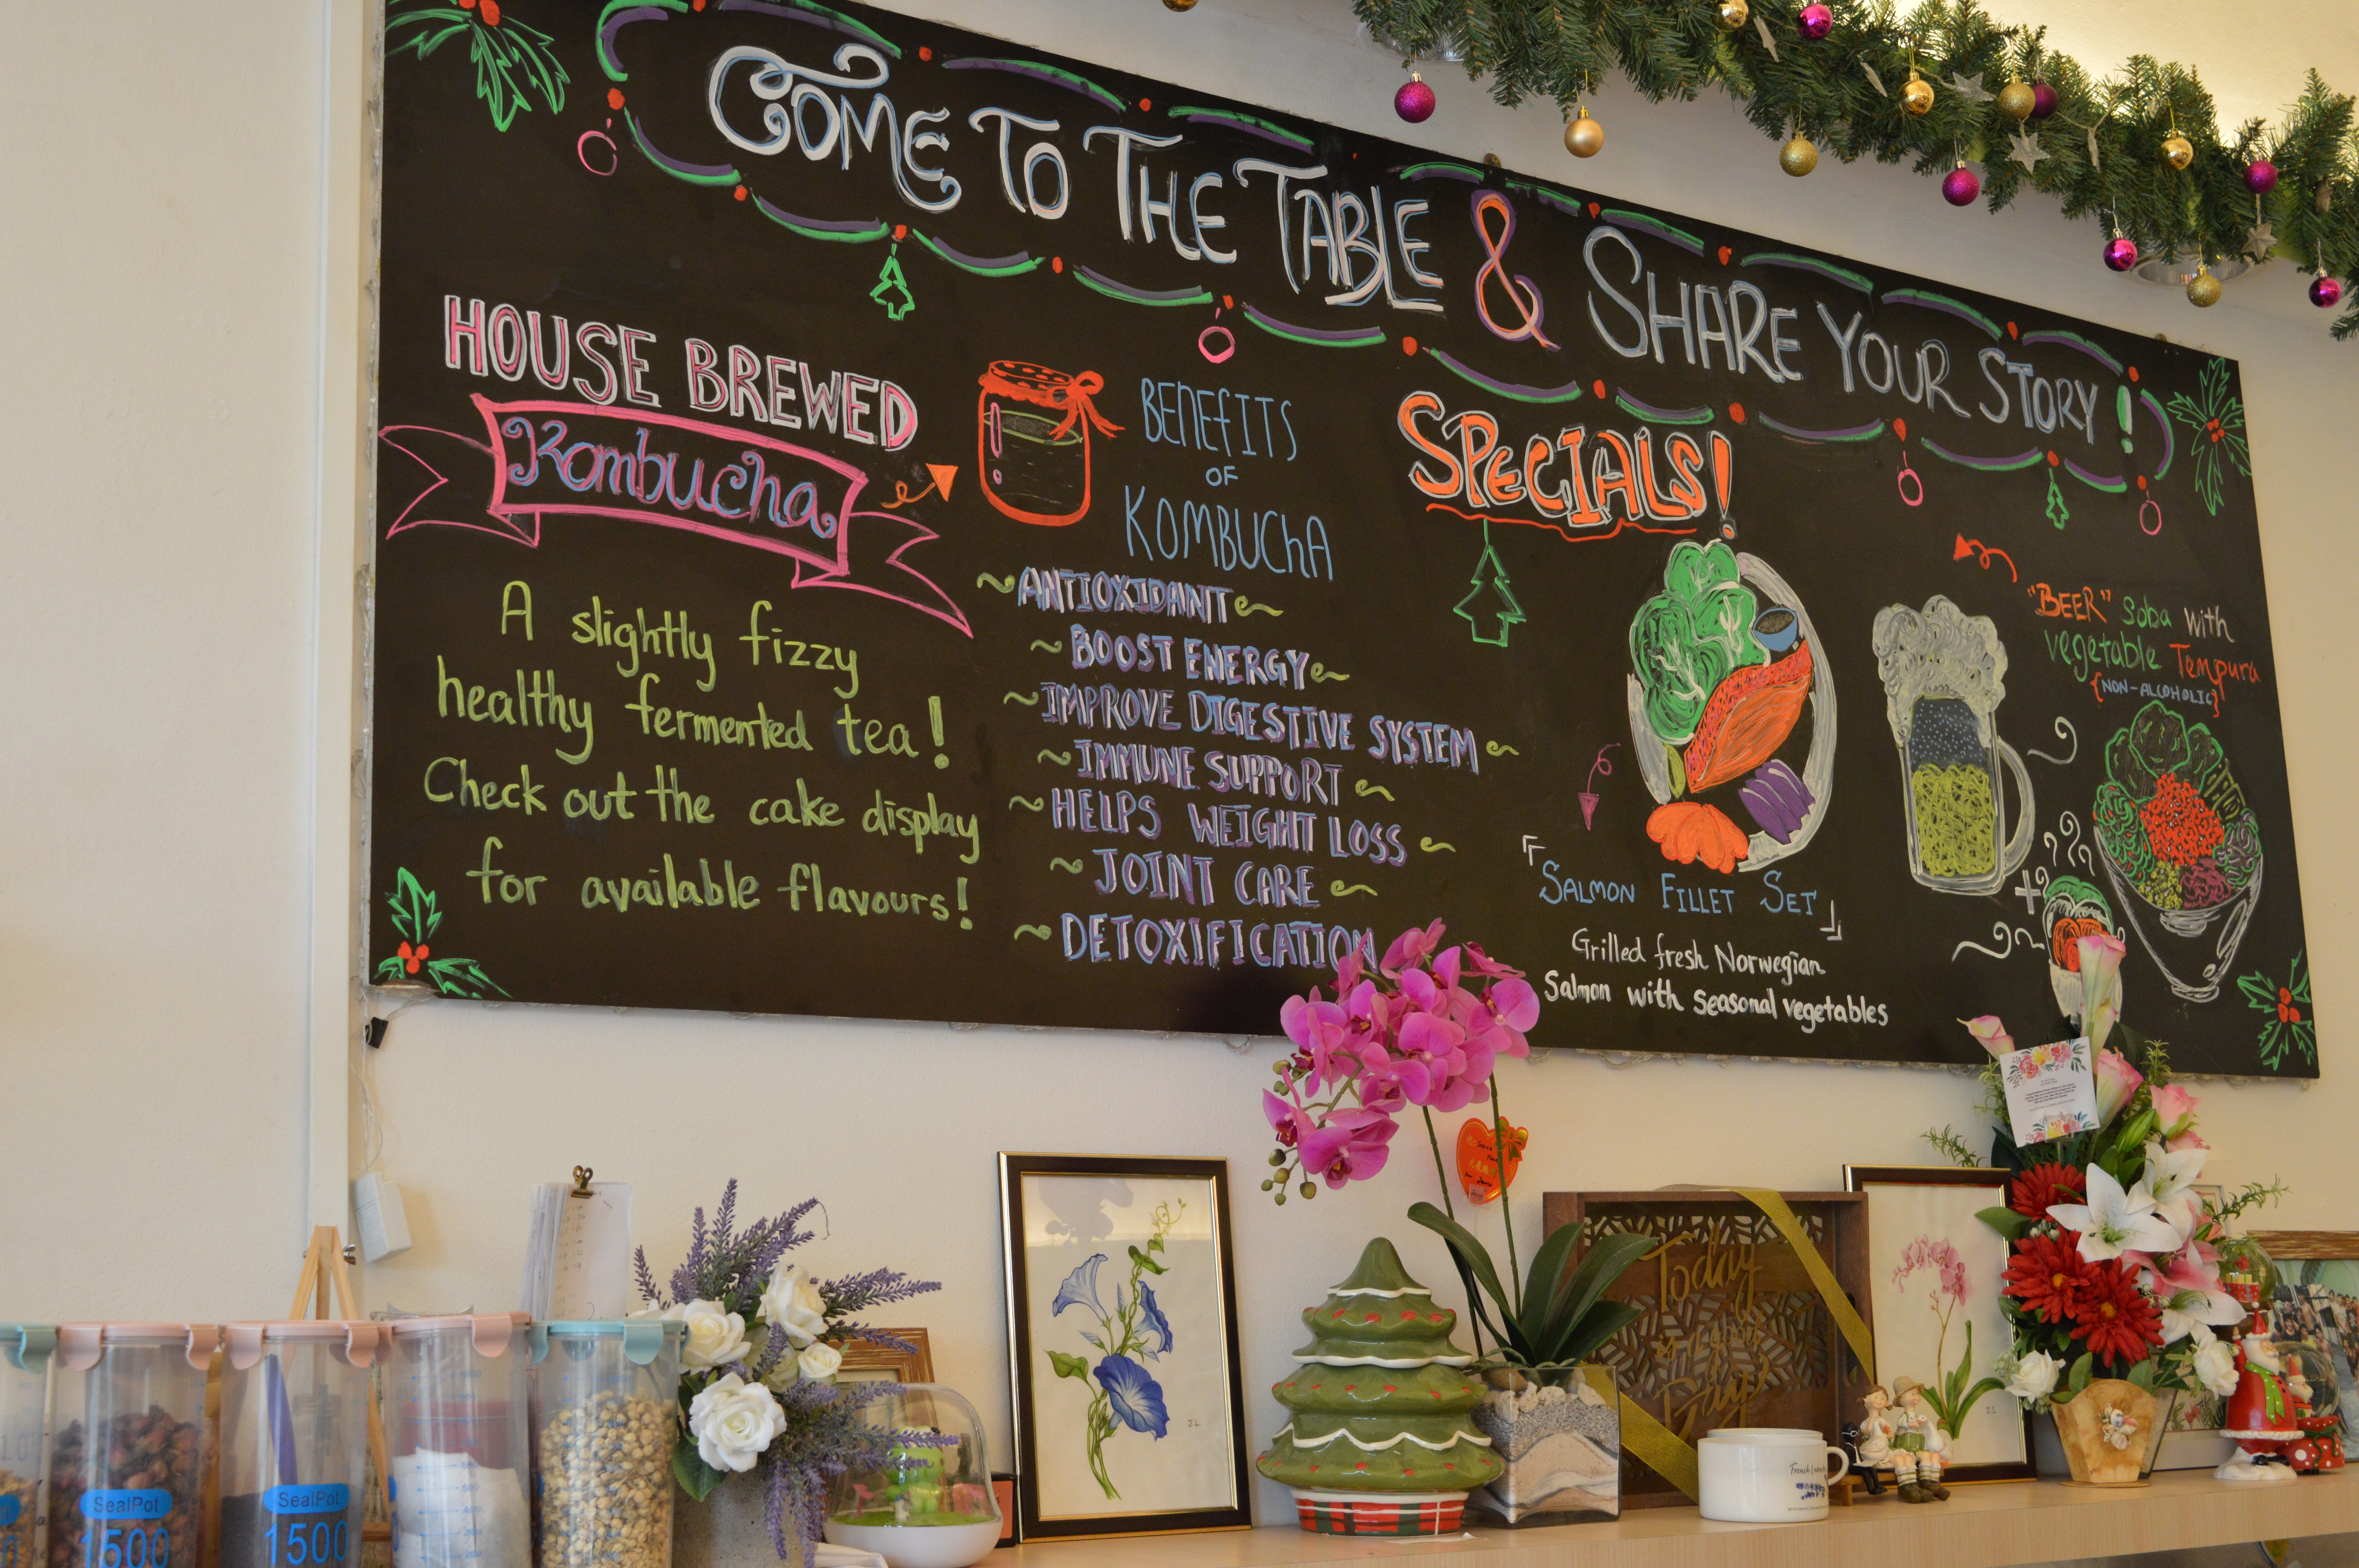 COME TO THE TABLE & SHARE YOUR STORY!
HOUSE BREWED
Kombucha
A slightly fizzy
healthy fermented tea!
Check out the cake display
for available flavours!
BENEFITS
OF
KOMBUCHA
~ANTIOXIDANT~
~BOOST ENERGY~
~IMPROVE DIGESTIVE SYSTEM~
~IMMUNE SUPPORT~
~HELPS WEIGHT LOSS~
~JOINT CARE~
~DETOXIFICATION
SPECIALS!
「SALMON FILLET SET」
Grilled fresh Norwegian
Salmon with seasonal vegetables
"BEER" Soba with
vegetable Tempura
{NON-ALCOHOLIC}
+
SealPot
1500
SealPot
1500
J.L
Today
is a good
Day
J.L
French